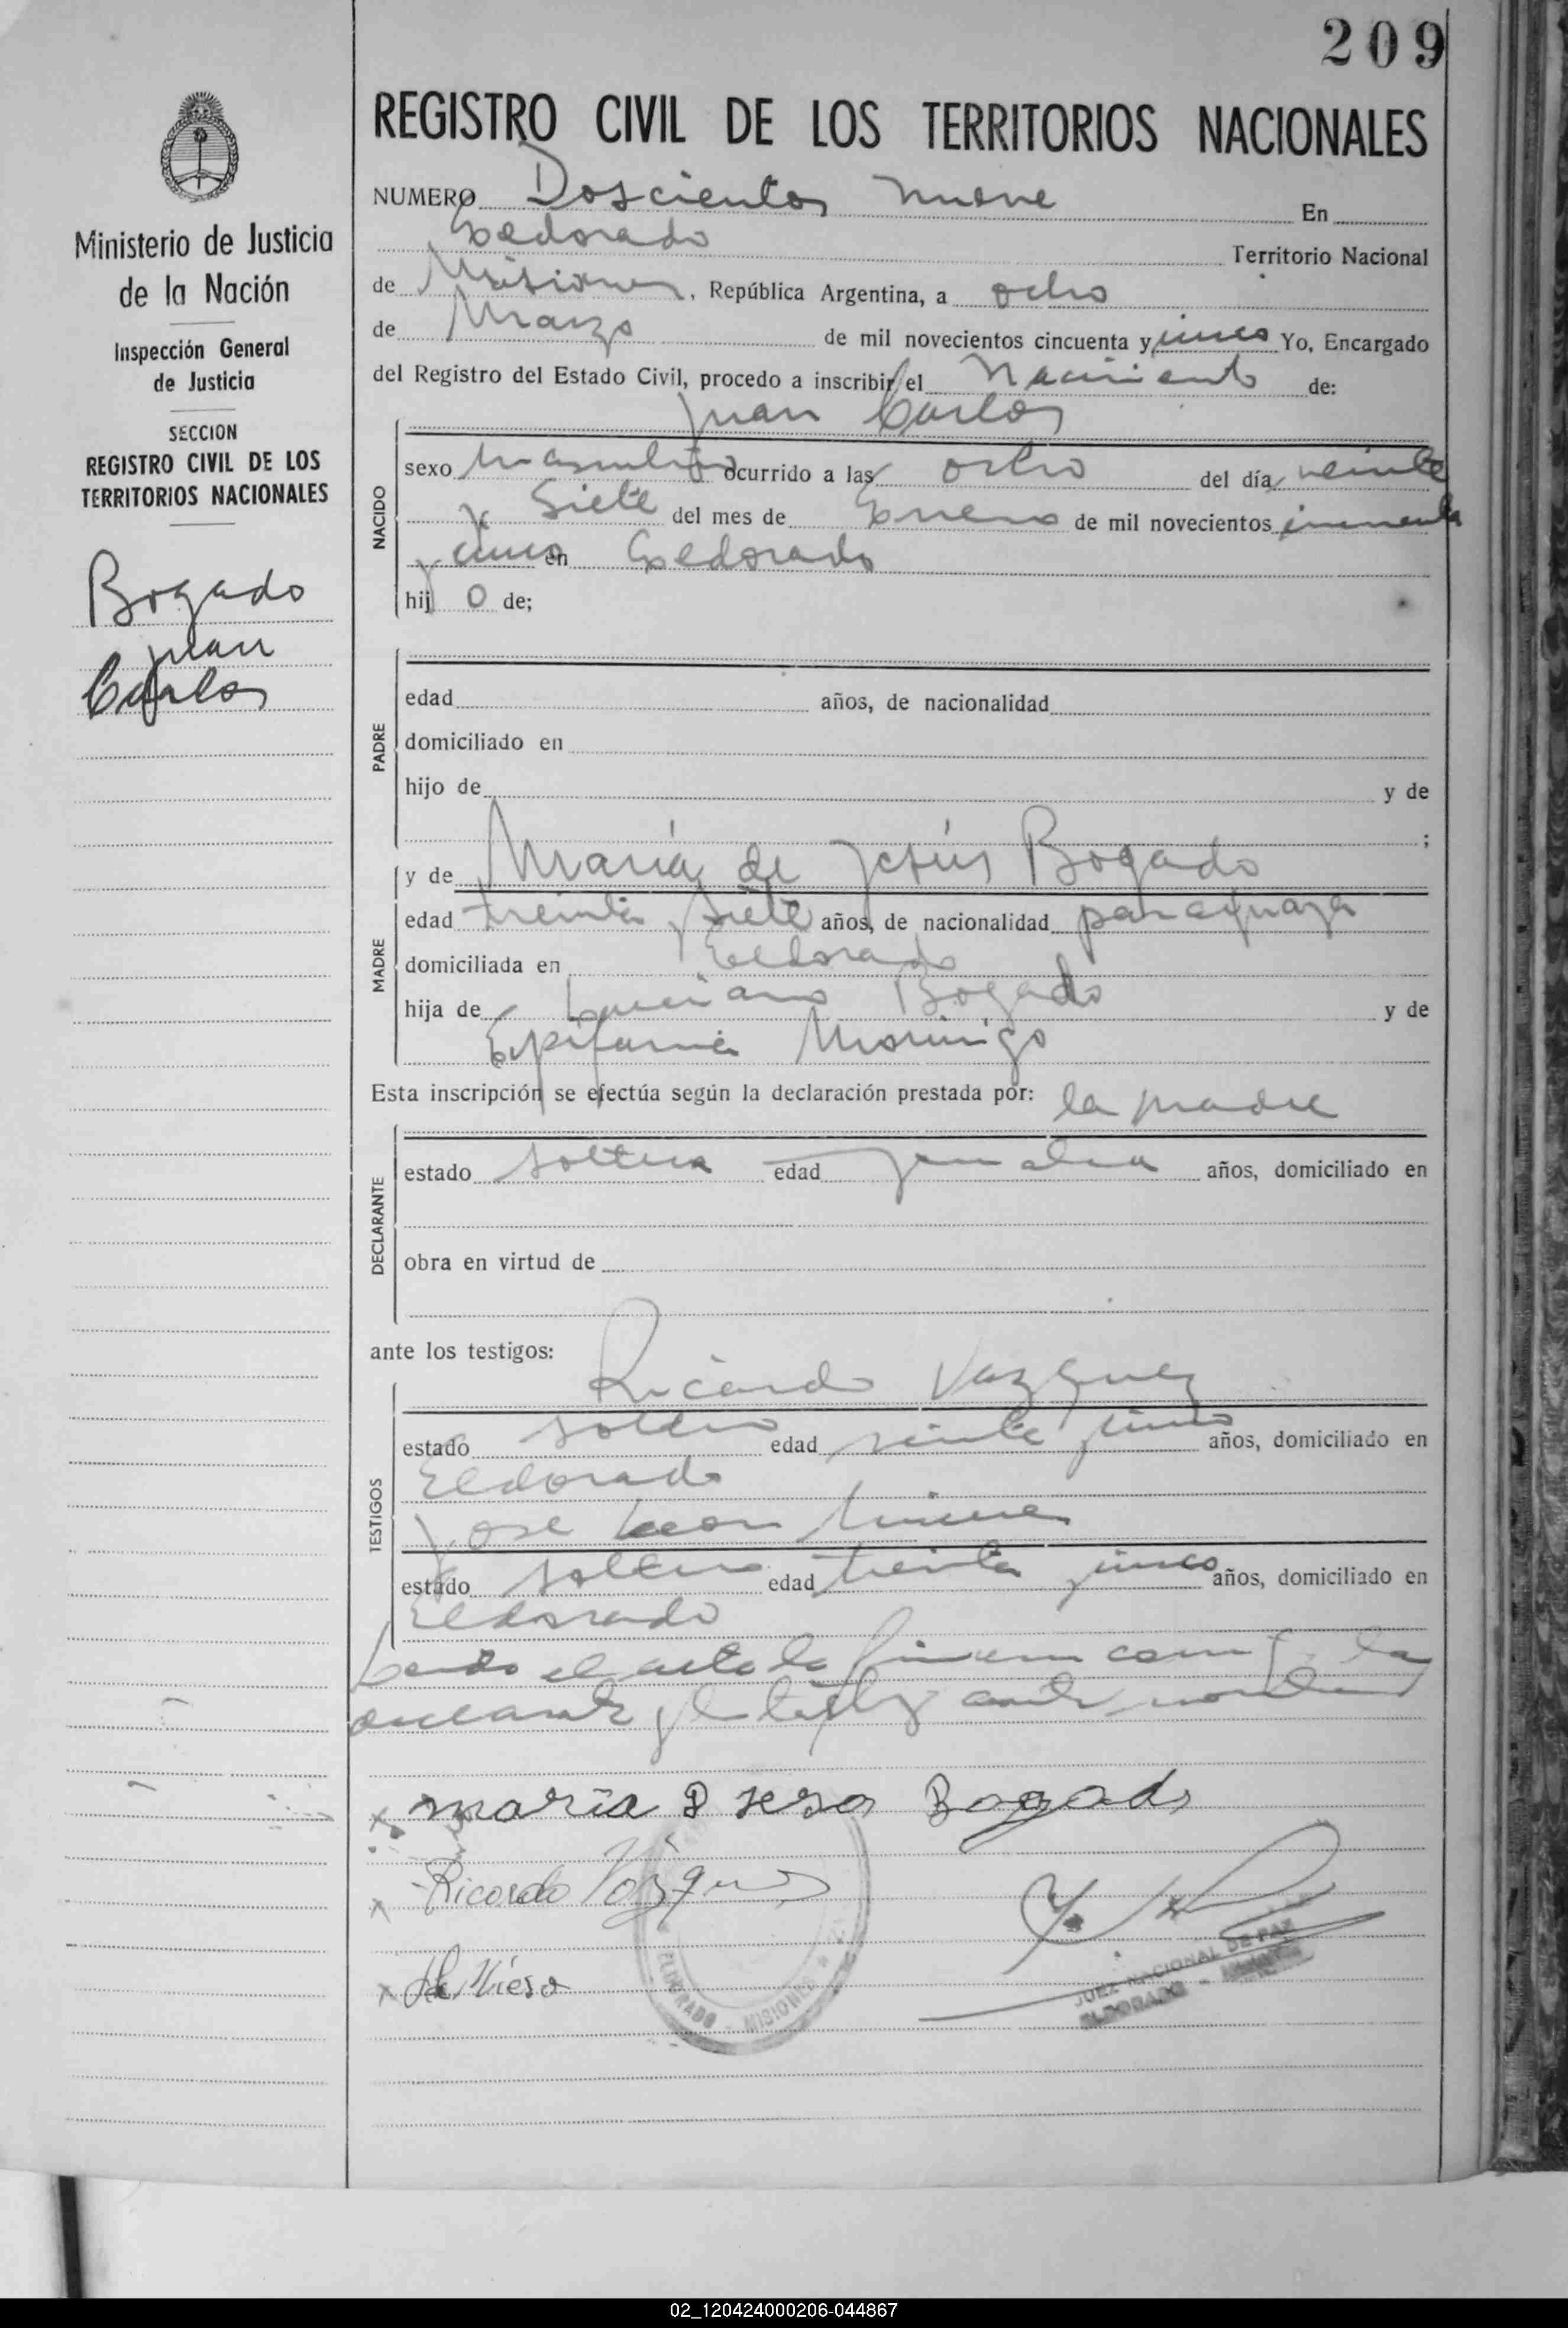 209
REGISTRO CIVIL DE LOS TERRITORIOS NACIONALES
Ministerio de Justicia
de la Nación
Inspección General
de Justicia
SECCION
REGISTRO CIVIL DE LOS
TERRITORIOS NACIONALES
Bogado
Juan
Carlos
NUMERO Doscientos nueve En
Eldorado Territorio Nacional
de Misiones, República Argentina, a ocho
de Marzo de mil novecientos cincuenta y cinco Yo, Encargado
del Registro del Estado Civil, procedo a inscribir el Nacimiento de:
Juan Carlos
NACIDO
sexo masculino ocurrido a las ocho del día veinte
y siete del mes de Enero de mil novecientos cincuenta
y cinco en Eldorado
hijo de;
PADRE
edad años, de nacionalidad
domiciliado en
hijo de y de
;
MADRE
y de María de Jesús Bogado
edad treinta y siete años, de nacionalidad paraguaya
domiciliada en Eldorado
hija de Bogado y de
Epifania Morinigo
Esta inscripción se efectúa según la declaración prestada por: la madre
DECLARANTE
estado soltera edad años, domiciliado en
obra en virtud de
ante los testigos:
TESTIGOS
Ricardo Vazquez
estado soltero edad veinte y cinco años, domiciliado en
Eldorado
Jose
estado soltero edad treinta y cinco años, domiciliado en
Eldorado
el acta la la
maria D jesus Bogado
Ricardo Vazquez
ELDORADO - MISIONES
JUEZ NACIONAL DE PAZ
ELDORADO -
02_120424000206-044867